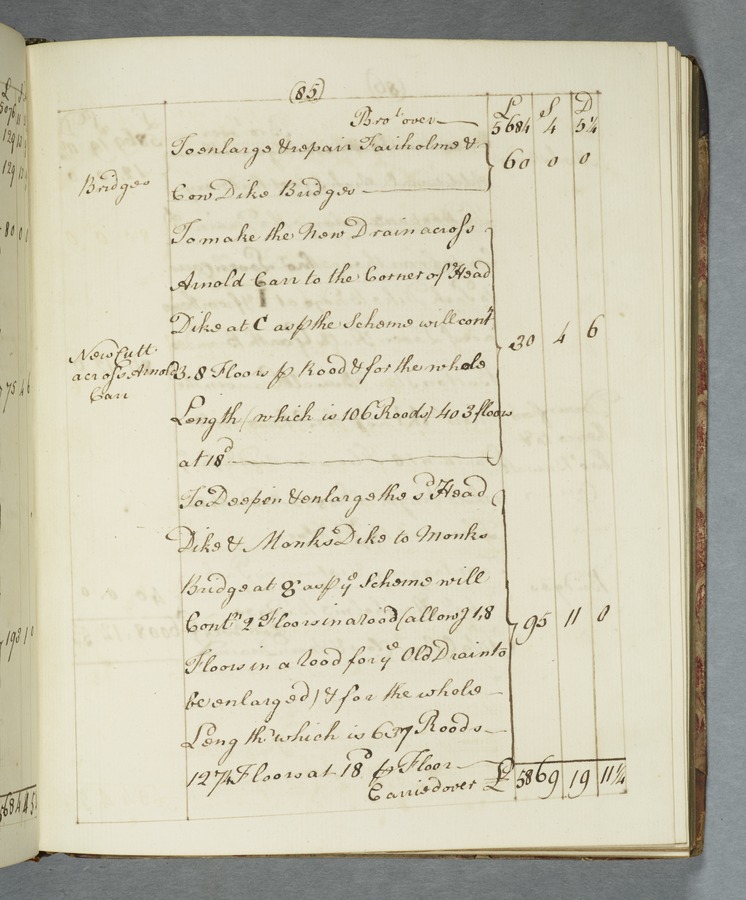 (85)
£ S D
Bro.t over 5684 4 5¼
To enlarge & repair Fairholme & 60 0 0
Bridges
Cow Dike Bridges
To make the New Drain across
Arnold Carr to the Corner of Head
Dike at C as p the Scheme will cont.
30 4 6
New Cutt
across Arnold
Carr
3.8 Floors p Rood & for the whole
Length (which is 106 Roods) 403 floors
at 18d
To Deepen & enlarge the sd Head
Dike & Monks Dike to Monks
Bridge at 8 as p ye Scheme will
Contn 2 Floors in a rood (allowg 1,8 95 11 0
Floors in a rood for ye Old Drain to
be enlarged) & for the whole
Length which is 637 Roods
1274 Floors at 18d p Floor
Carried over £ 5869 19 11¼